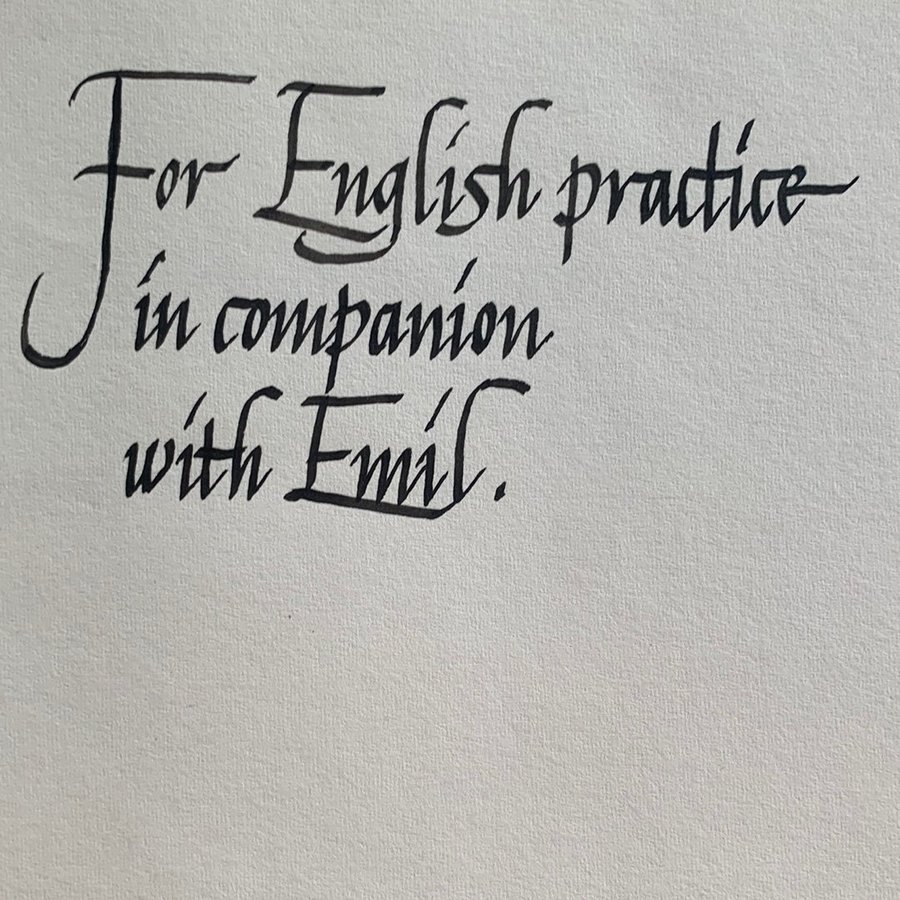 For English practice
in companion
with Emil.